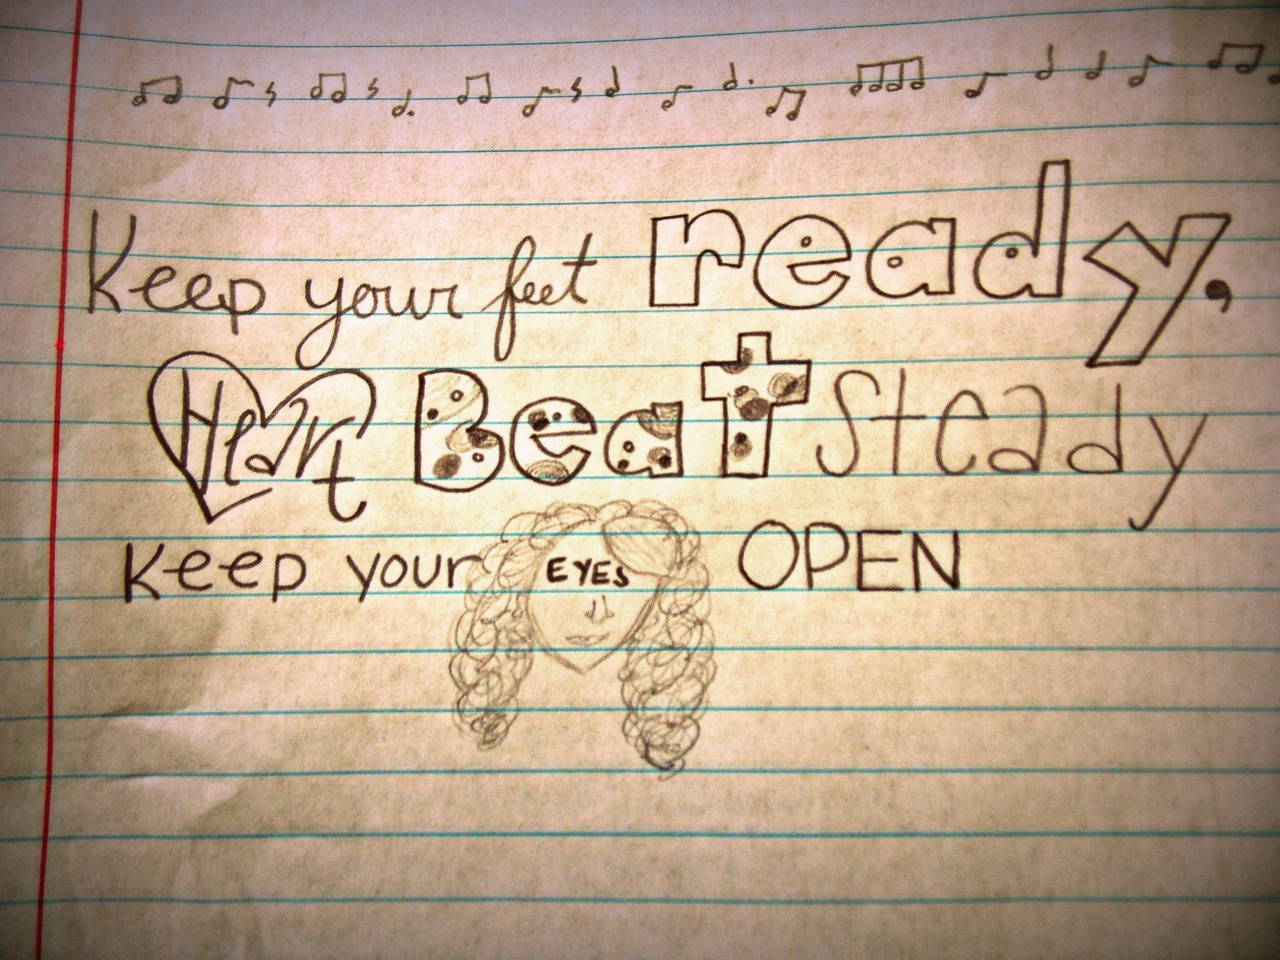 Keep your feet ready,
Heart Beat Steady
Keep your EYES OPEN